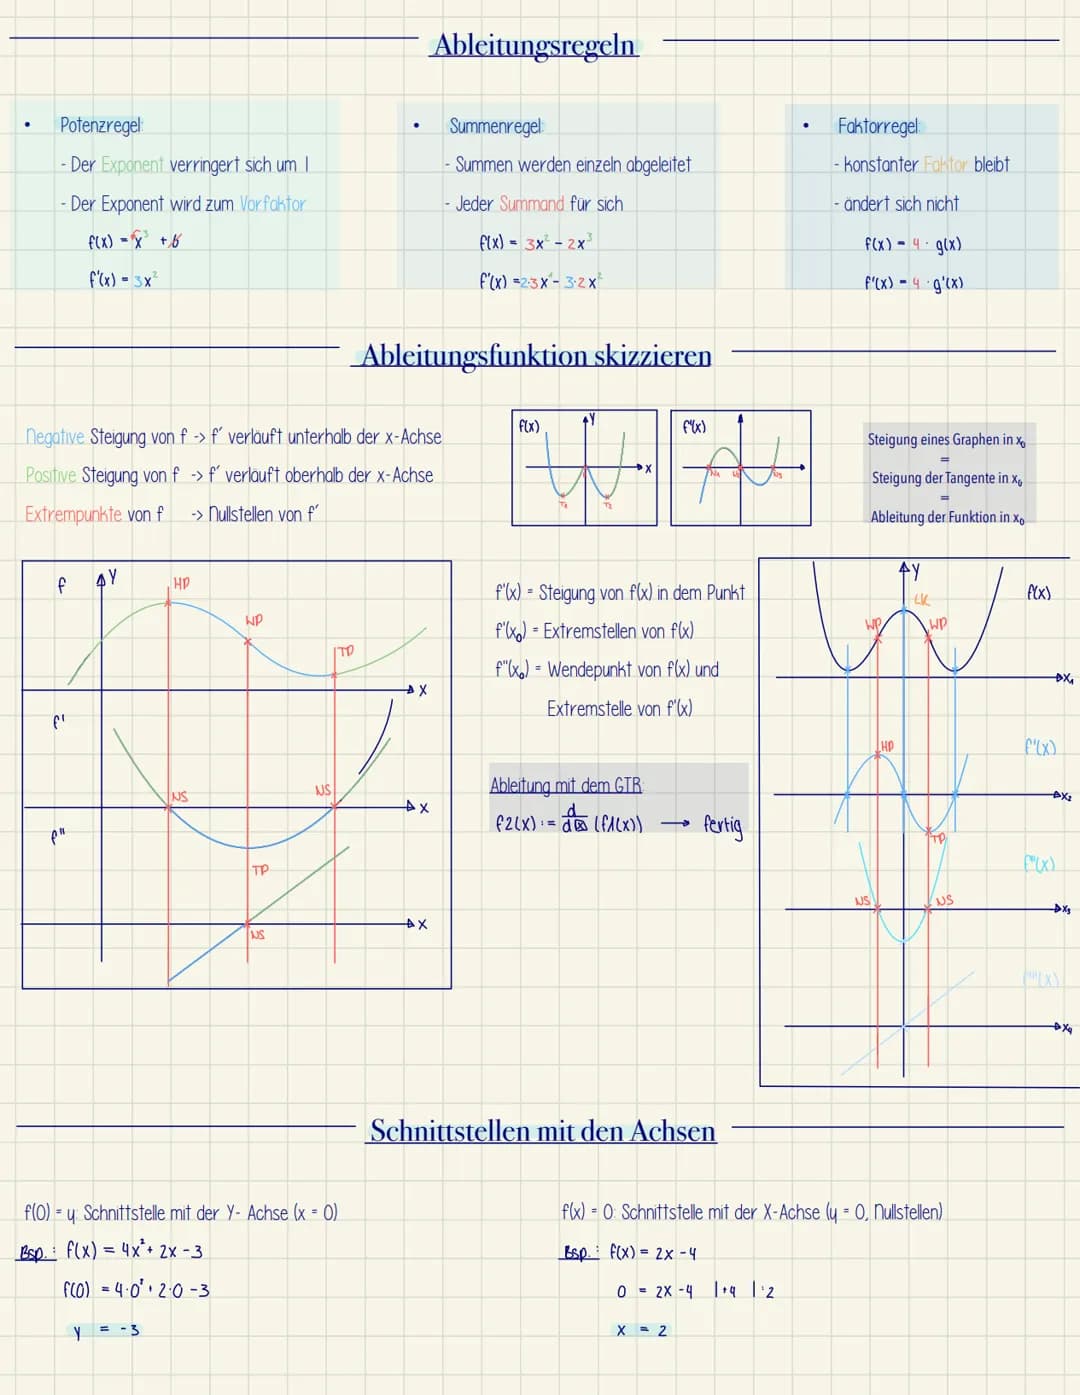 Ableitungsregeln
• Potenzregel:
- Der Exponent verringert sich um 1
- Der Exponent wird zum Vorfaktor
f(x) = x³ + 6
f'(x) = 3x²
• Summenregel:
- Summen werden einzeln abgeleitet
- Jeder Summand für sich
f(x) = 3x² - 2x³
f'(x) = 2·3x¹ - 3·2x²
• Faktorregel:
- konstanter Faktor bleibt
- ändert sich nicht
f(x) = 4 · g(x)
f'(x) = 4 · g'(x)
Ableitungsfunktion skizzieren
Negative Steigung von f -> f´ verläuft unterhalb der x-Achse
Positive Steigung von f -> f´ verläuft oberhalb der x-Achse
Extrempunkte von f -> Nullstellen von f´
f(x) Y
X
T₁ T₂
f'(x)
N₁ N₂ N₃
Steigung eines Graphen in x₀
=
Steigung der Tangente in x₀
=
Ableitung der Funktion in x₀
f Y HP
WP
TP
X
f'
NS NS
X
f''
TP
X
NS
f'(x) = Steigung von f(x) in dem Punkt
f'(x₀) = Extremstellen von f(x)
f"(x₀) = Wendepunkt von f(x) und
Extremstelle von f'(x)
Ableitung mit dem GTR:
f2(x) := d/dx (f1(x)) → fertig
Y f(x)
WP WP
X₁
HP f'(x)
X₂
TP
f''(x)
NS NS
X₃
f'''(x)
X₄
Schnittstellen mit den Achsen
f(0) = y: Schnittstelle mit der Y- Achse (x = 0)
Bsp.: f(x) = 4x² + 2x - 3
f(0) = 4·0² + 2·0 - 3
y = -3
f(x) = 0: Schnittstelle mit der X-Achse (y = 0, Nullstellen)
Bsp.: f(x) = 2x - 4
0 = 2x - 4 |+4 |:2
x = 2